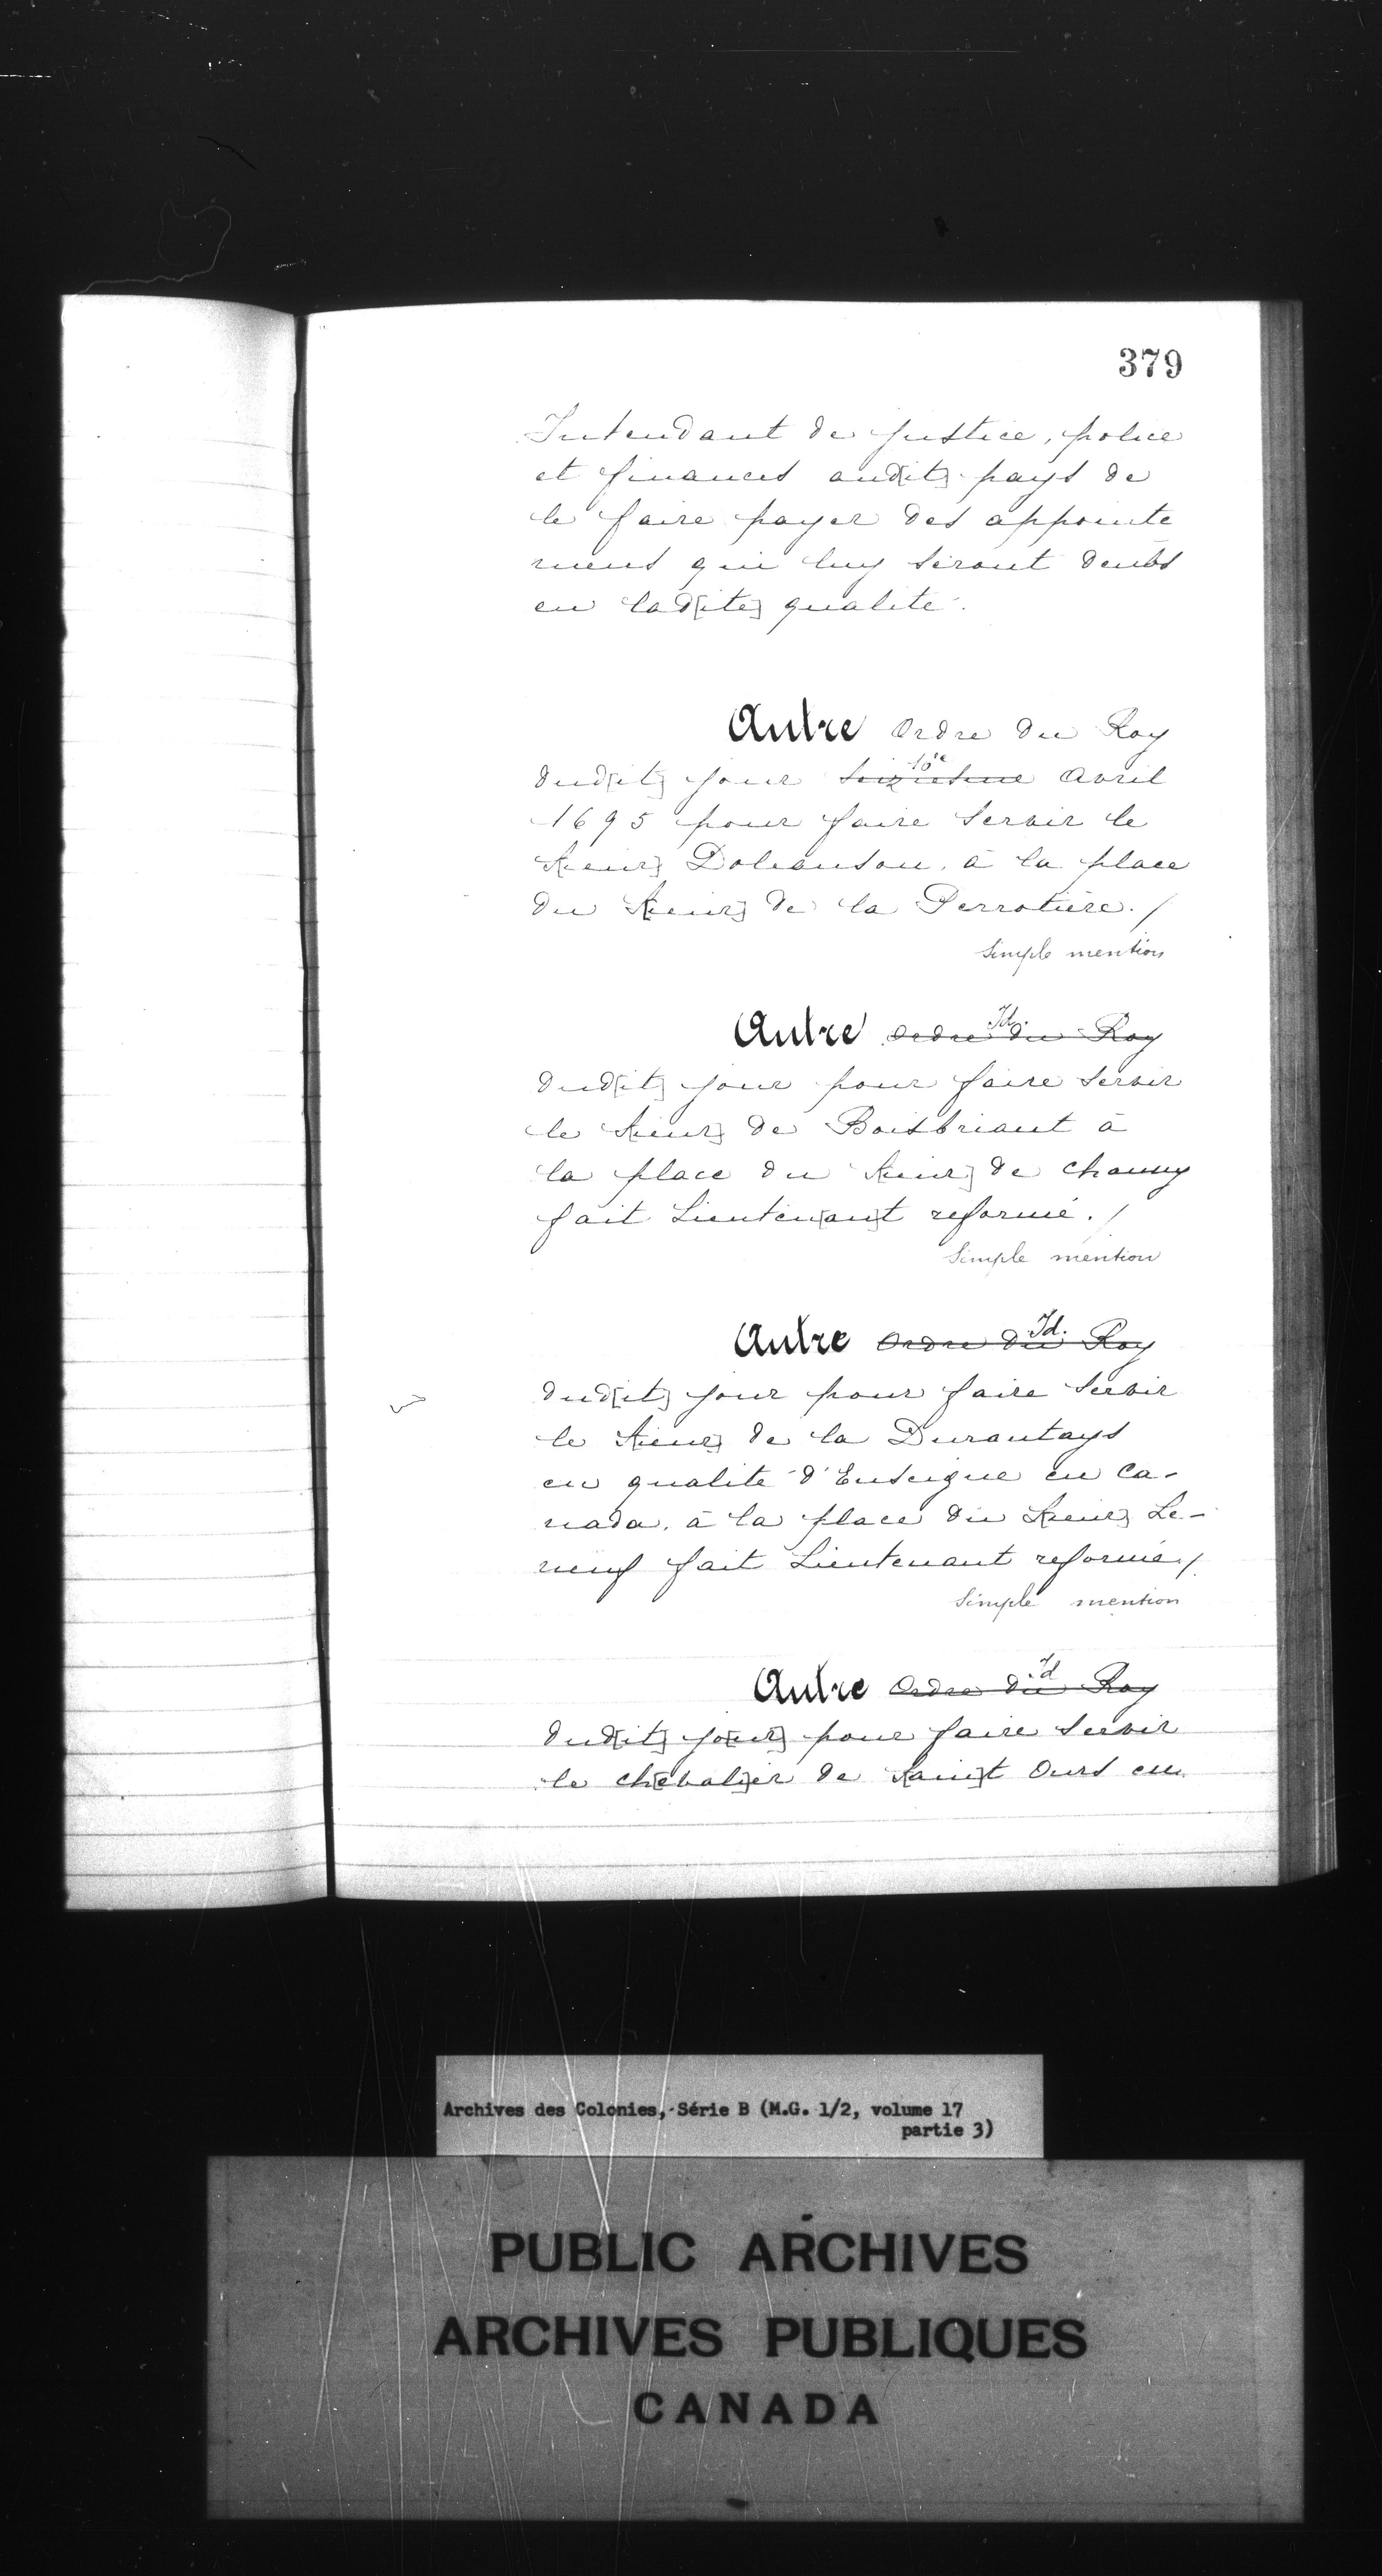 379
Intendant de justice, police
et finances aud[it] pays de
le faire payer des appointe
mens qui luy seront deubs
en lad[ite] qualité.
Autre Ordre du Roy
dud[it] jour seizieme 16e avril
1695 pour faire servir le
S[ieur] Doleanson, à la place
du S[ieur] de la Perrotière./
Simple mention
Autre ordre du Roy Id.
dud[it] jour pour faire servir
le S[ieur] de Boisbriant à
la place du S[ieur] de Chauny
fait Lieuten[an]t reformé./
Simple mention
Autre Ordre du Roy Id.
dud[it] jour pour faire servir
le S[ieur] de la Durantays
en qualité d'Enseigne en Ca-
nada, à la place du S[ieur] Le-
neuf fait Lieutenant reformé./
Simple mention
Autre Ordre du Roy Id
dud[it] jo[ur] pour faire servir
le ch[eval]ier de S[ain]t Ours en
Archives des Colonies, Série B (M.G. 1/2, volume 17
partie 3)
PUBLIC ARCHIVES
ARCHIVES PUBLIQUES
CANADA